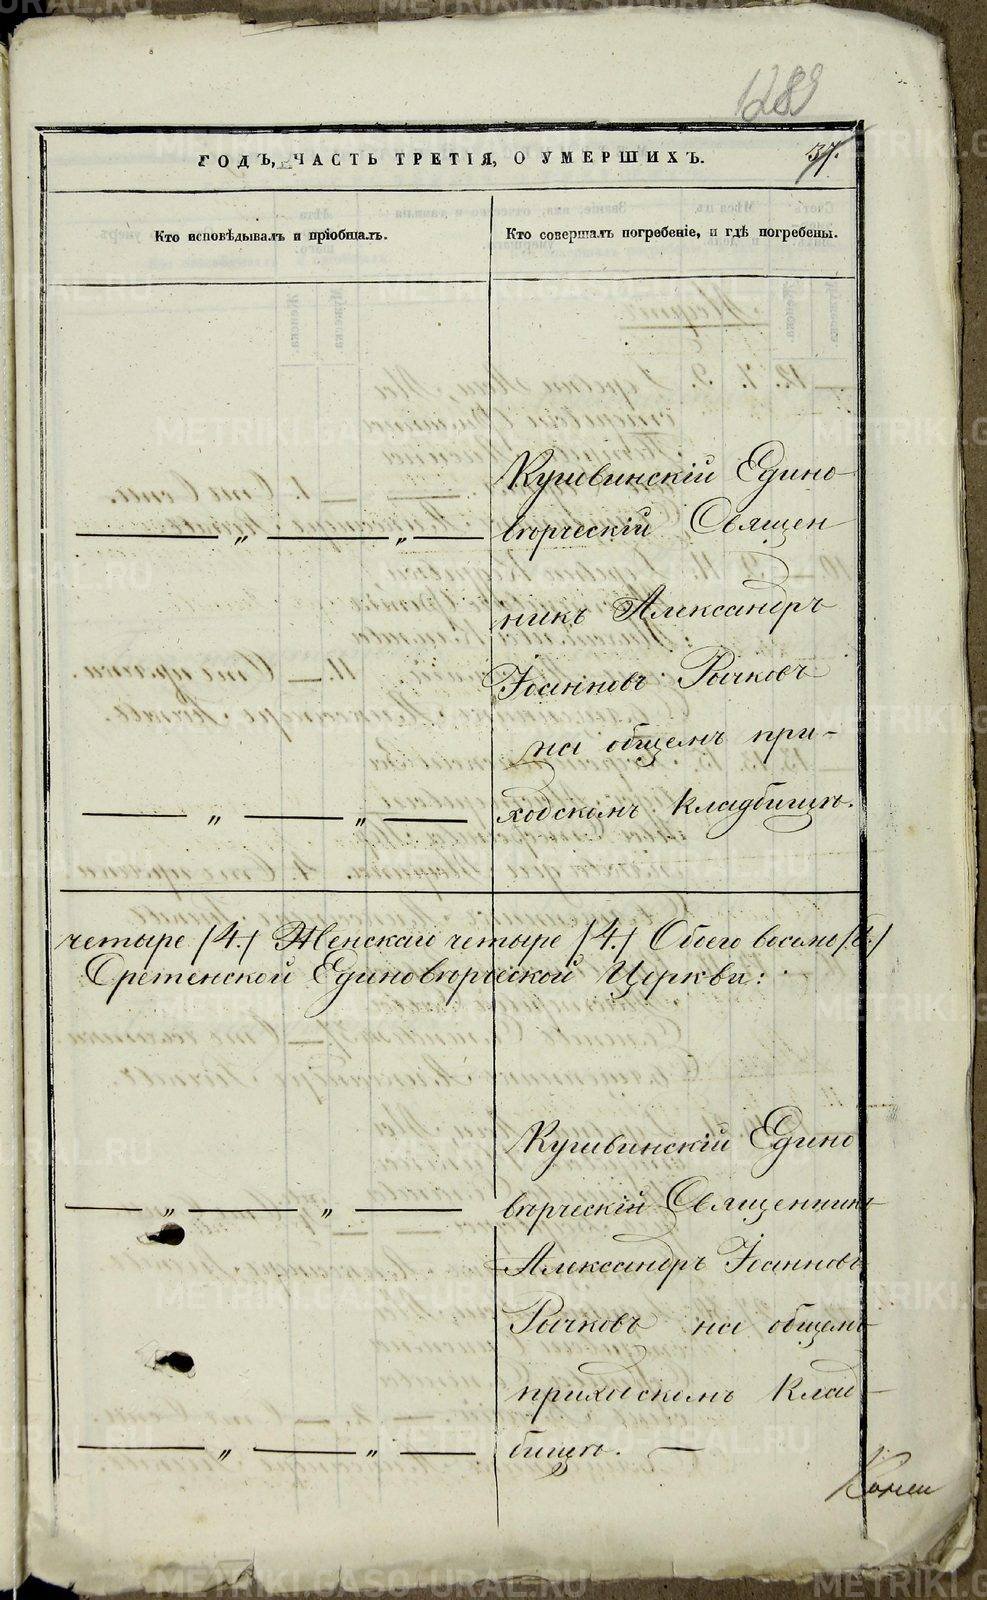 1289
ГОДЪ, ЧАСТЬ ТРЕТІЯ, О УМЕРШИХЪ.
37.
Кто исповѣдывалъ и пріобщалъ.
Кто совершалъ погребеніе, и гдѣ погребены.
Кушвинскій Едино-
— „ — „ — вѣрческій Священ
никъ Александръ
Іоанновъ Рычковъ
на общемъ при-
— „ — „ — ходскомъ кладбищѣ.
четыре /4./ Женскаго четыре /4./ Обоего восемь /8./
Срѣтенской Единовѣрческой Церкви:
Кушвинскій Едино
— „ — „ — вѣрческій Священникъ
Александръ Іоанновъ
Рычковъ на общемъ
приходскомъ клад-
— „ — „ — бищѣ. —